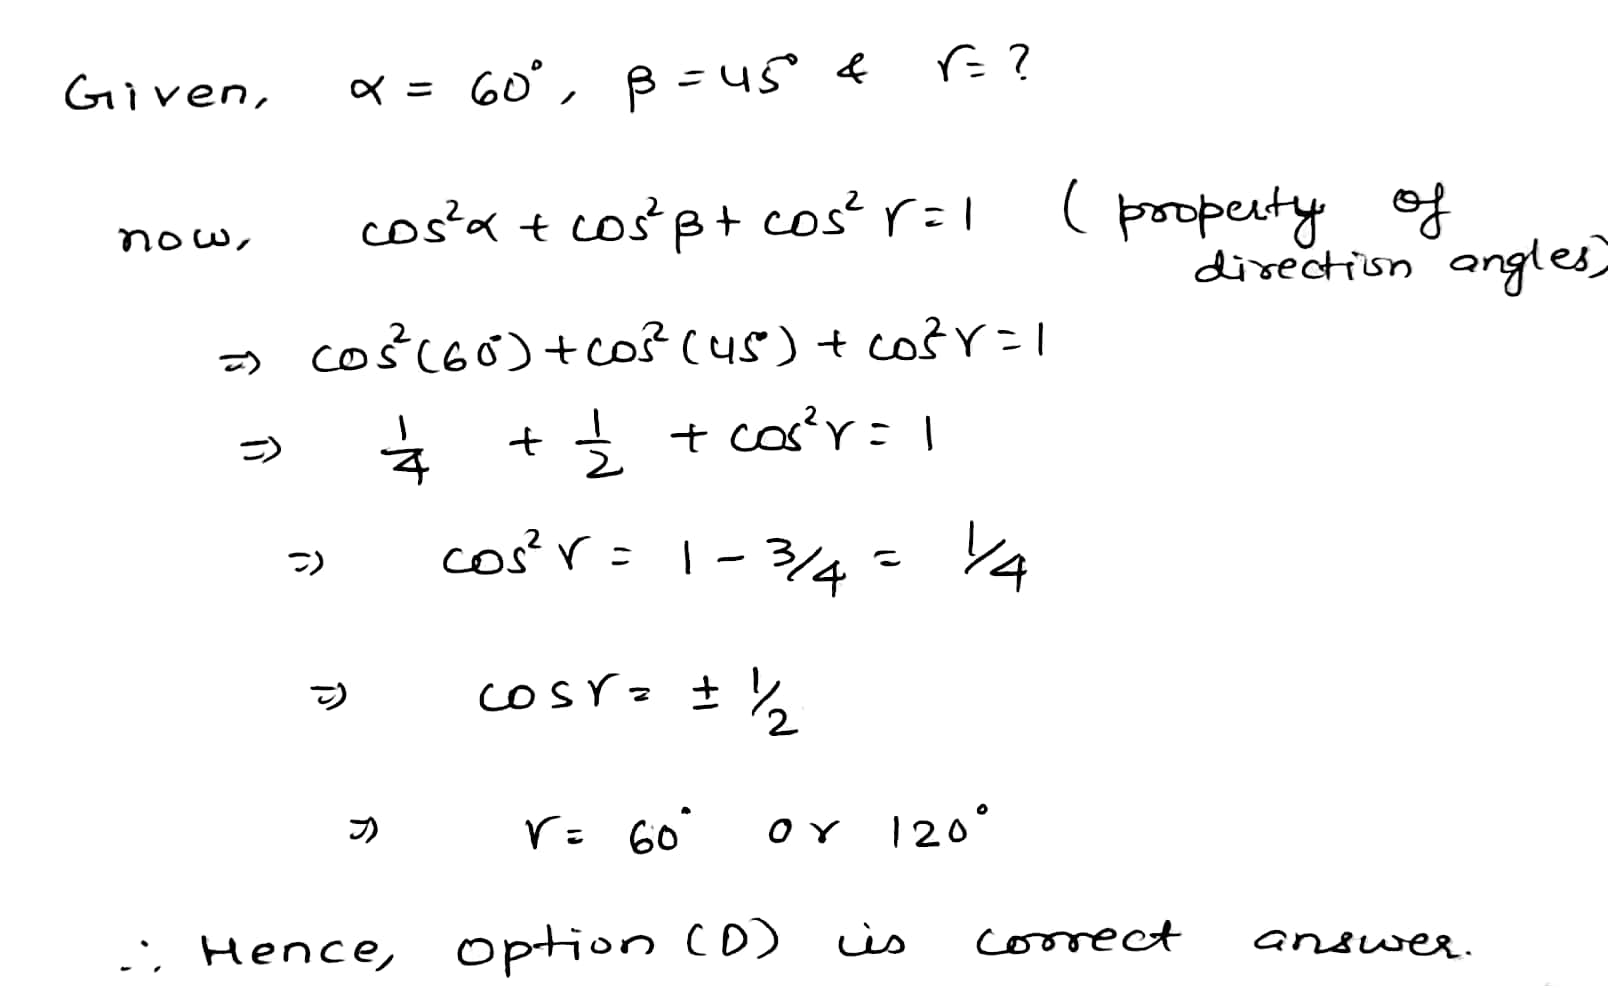 Given, α = 60°, β = 45° & r = ?
now, cos²α + cos²β + cos²r = 1 (property of
direction angles)
⇒ cos²(60°) + cos²(45°) + cos²r = 1
⇒ 1/4 + 1/2 + cos²r = 1
⇒ cos²r = 1 - 3/4 = 1/4
⇒ cosr = ± 1/2
⇒ r = 60° or 120°
∴ Hence, option (D) is correct answer.